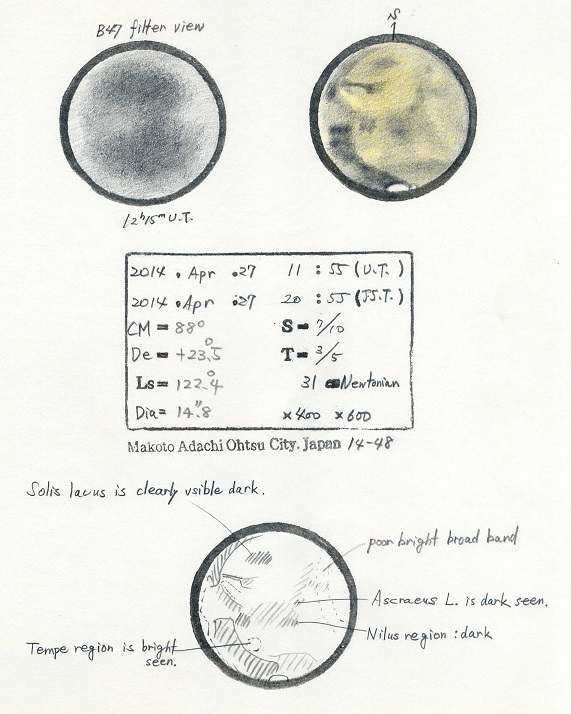 B47 filter view
S
12h15m U.T.
2014 . Apr . 27 11 : 55 (U.T.)
2014 . Apr . 27 20 : 55 (J.S.T.)
CM = 88° S = 7/10
De = +23.°5 T = 3/5
Ls = 122.°4 31 cm Newtonian
Dia = 14."8 ×400 ×600
Makoto Adachi Ohtsu City. Japan 14-48
Solis lacus is clearly vsible dark.
poor bright broad band
Ascraeus L. is dark seen.
Nilus region : dark
Tempe region is bright
seen.